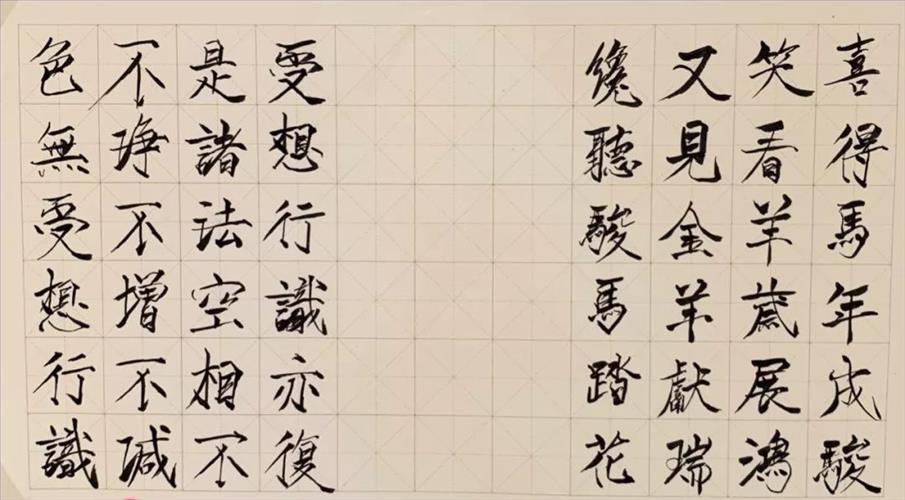 喜得馬年成駿
笑看羊歲展鴻
又見金羊獻瑞
纔聽駿馬踏花
受想行識亦復
是諸法空相不
不淨不增不減
色無受想行識